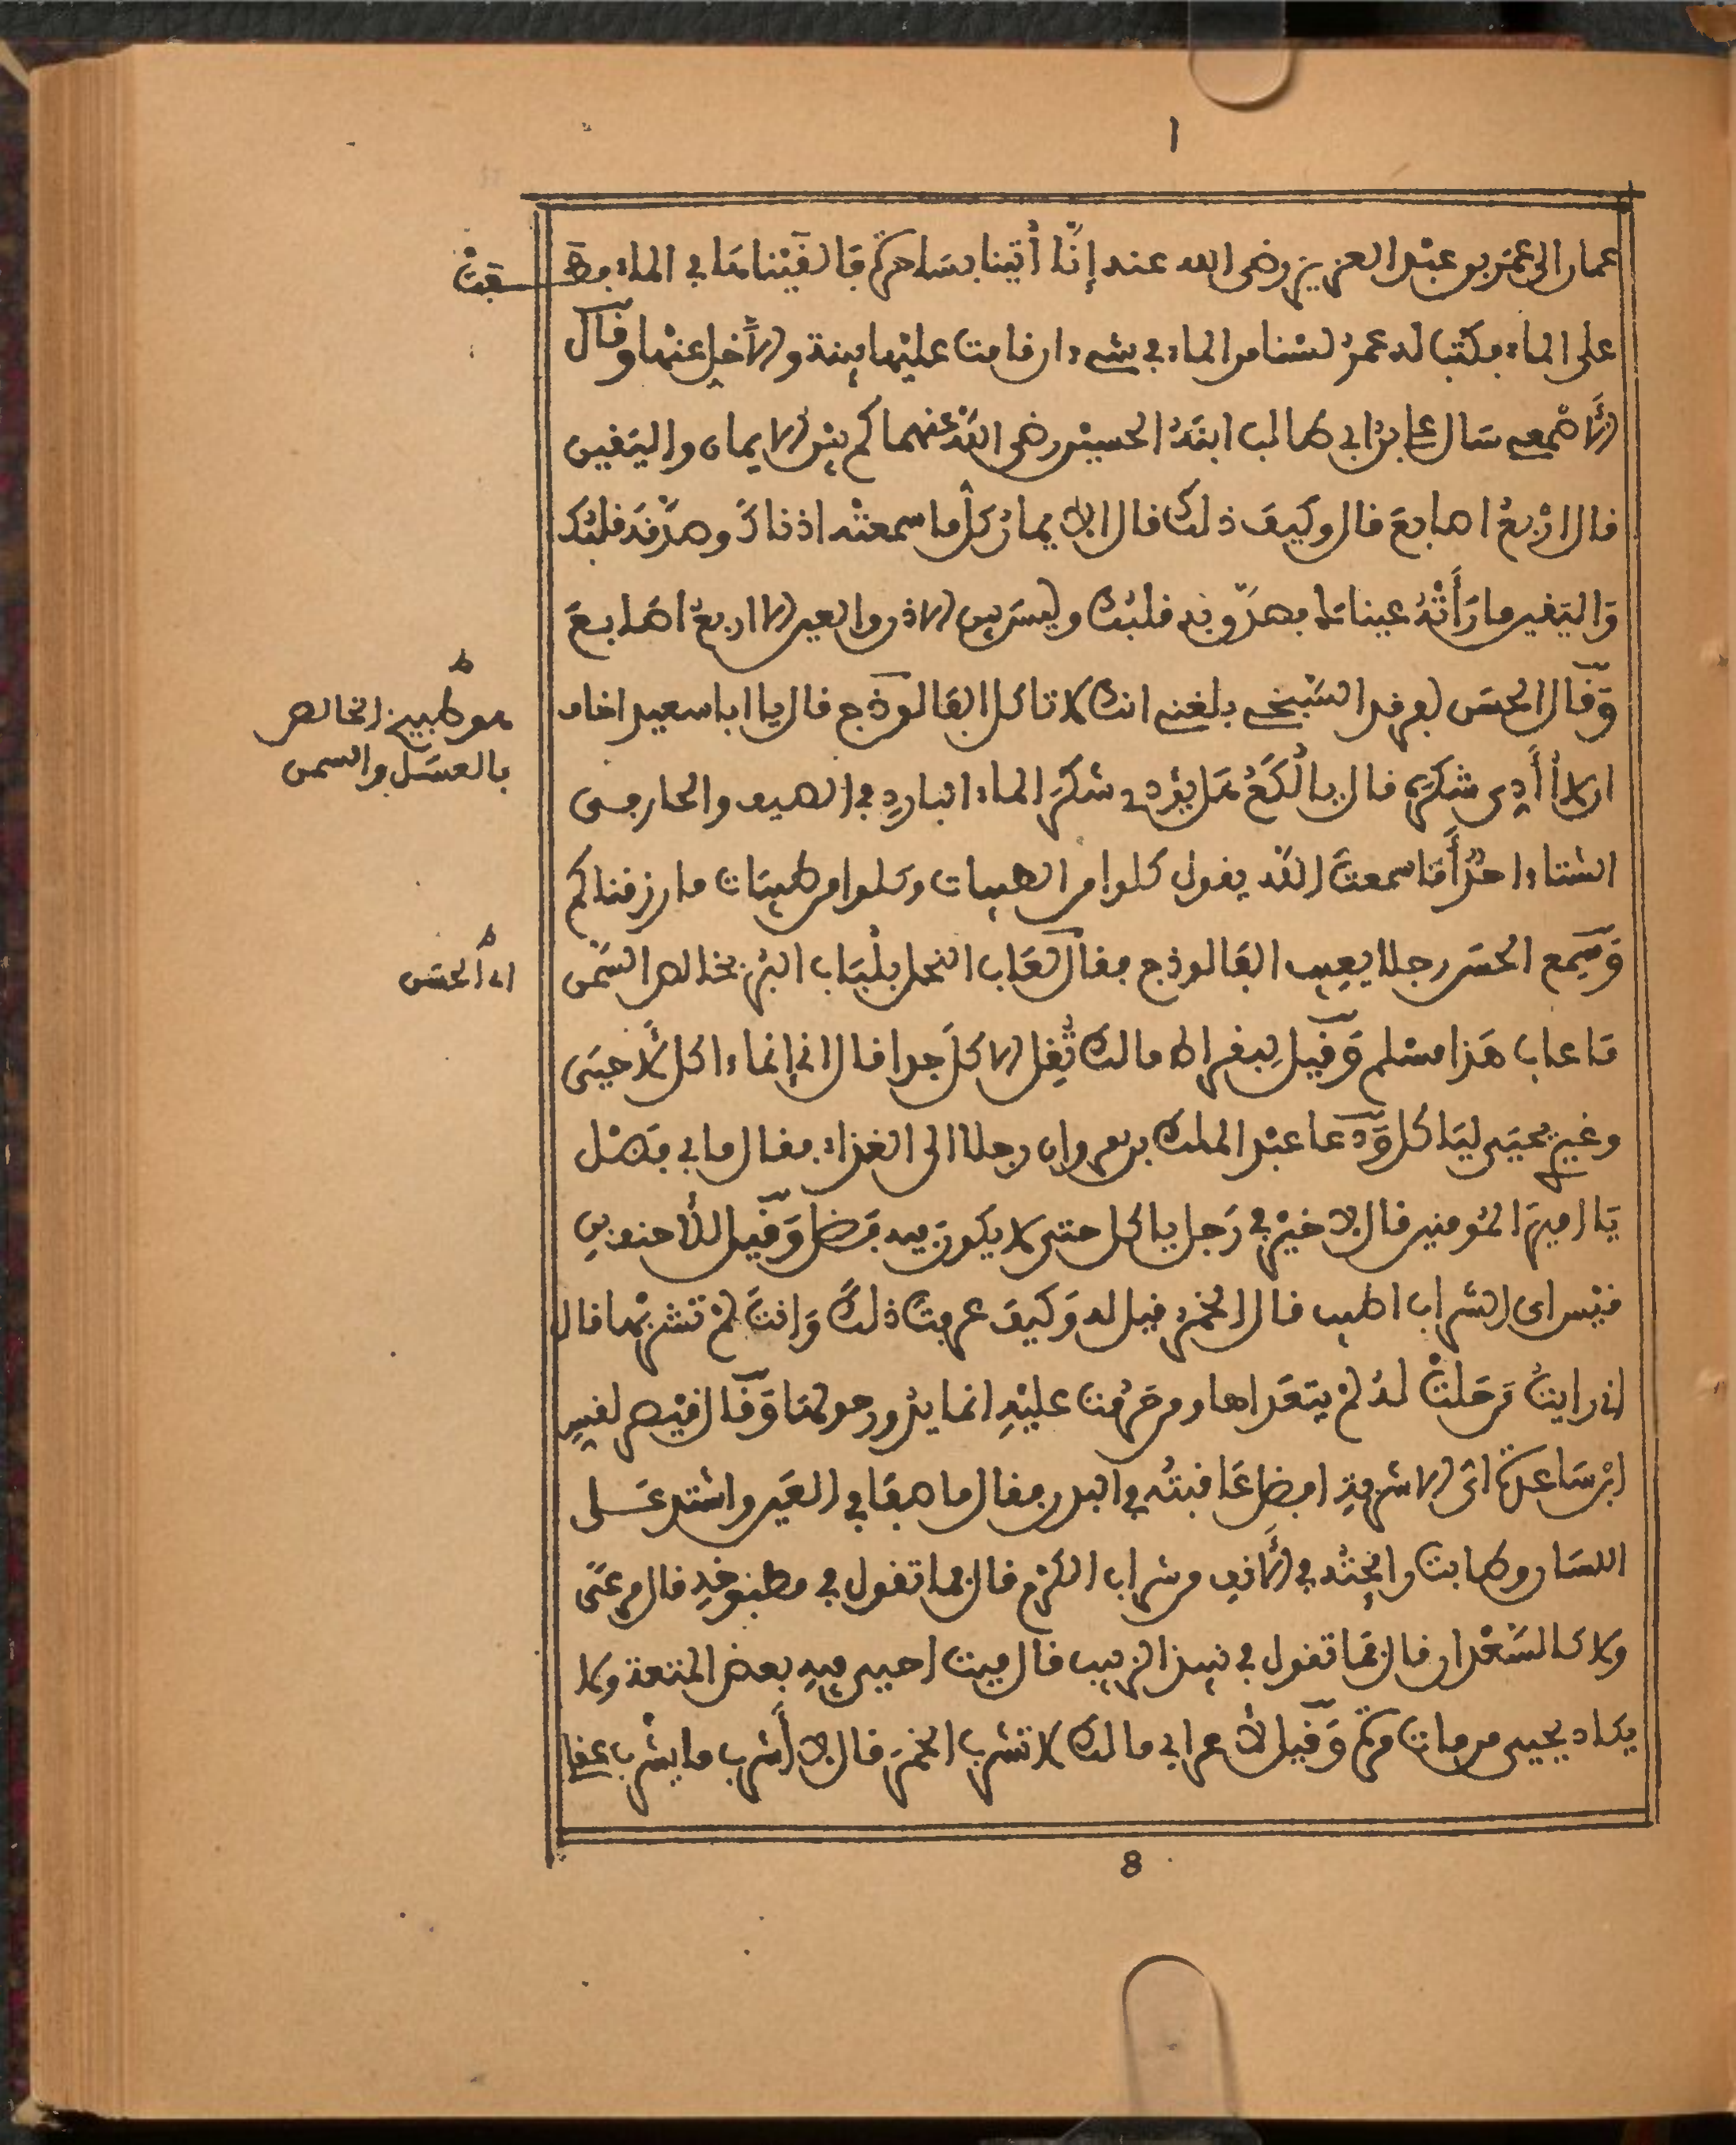 ا
عمان الى عُمَر بن عبْد العزيز رضى الله عنه إِنَّا أُتينا بسَاحرةٍ فَالفَيْنَاهَا في الماء فطَفتْ
على الماء فكتب له عمرُ لسْنا من الماء في شىء ان قامت عليْها بينة والَّا خلِ عنْها وقَال
الأصْمعى سَال على بن ابى طالب ابنَهُ الحسيْن رضى اللهُ عنهما كم بيْن الايمان واليَقين
قال ارْبعُ اصابعَ قال وكَيفَ ذلك قال الايمانُ كلُّ ما سمعتْه اذناكَ وصدَّقه قلبُك
وَاليَقين ما رَأَتْهُ عيناكَ فصدّق به قلبُك وليسَ بين الاذن والعين الا اربعُ اصَابعَ
وَقَال الحسَن لفرقد السَّبخى بلغنى انك لا تاكل الفَالوذج قال يا ابا سعيد اخاف
ان لا أُأَدِى شكرَه قال يا لُكَعُ هَل يُؤدى شكرَ الماء الباردِ في الصيف والحار في
الشتاء احدٌ أَمَا سمعتَ اللهَ يقول كلوا من الطيبات وكلوا من طيبَات ما رزقناكم
وَسَمِع الحسَن رجلا يعِيب الفَالوذج فقال لعَاب النحل بلُبَاب البُر بخالص السَّمن
مَا عاب هَذا مسْلم وَقِيل لبقراط مالك تُقِل الاكلَ جدا قال انى إنما ءاكل لأَحيَى
وغيرى يحيَى ليَاكل وَدَعا عبْد الملك بن مروان رجلا الى الغذاء فقال ما بى فَضْل
يَا امير المُومنين قال لا خيْر في رَجل ياكل حتى لا يكونَ فيه فَضل وَقيل للأحنف بن
قيْس اى الشراب اطيب قال الخمر قيل له وَكيفَ عرفتَ ذلكَ وَانتَ لمْ تشربْها قال
انى رايتُ مَن حَلتْ لهُ لمْ يتعَداها ومن حَرُمت عليْهِ انما يدُور حولهَا وَقَال قيْصر لقس
ابن سَاعدة اى الاشربةِ افضل عَاقبتُه في البدن فقال ما صفَا في العَين واشتد عَلى
اللسَان وطابت رائحتُه في الأنفِ من شراب الكرْم قال فما تقول في مطبُوخهِ قال مرعىً
ولا كالسَّعْدان قال فمَا تقول في نبيذ الزبيب قال ميت احيى فيهِ بعضُ المتعة ولا
يكاد يحيى من مات مرة وَقيل لأعرابى مالك لا تشرب الخمرَ قال لا أشرب ما يشرب عقلى
هو طبيخ الخالص
بالعسَل والسمن
اى الحسَن
8